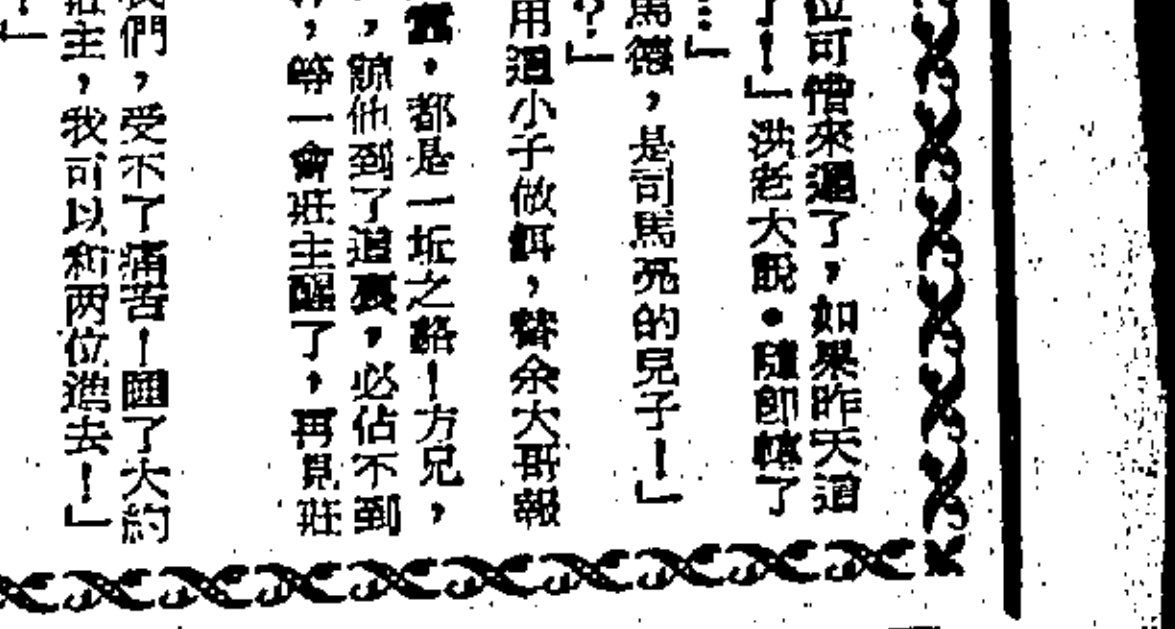 位可惜來遲了，如果昨天這
了！」洪老大說。隨即轉了
…」
馬德，是司馬亮的兒子！」
？」
用這小子做餌，替余大哥報
，都是一坵之貉！方兄，
，諒他到了這裏，必佔不到
，等一會莊主醒了，再見莊
我們，受不了痛苦！睡了大約
莊主，我可以和两位進去！」
？」